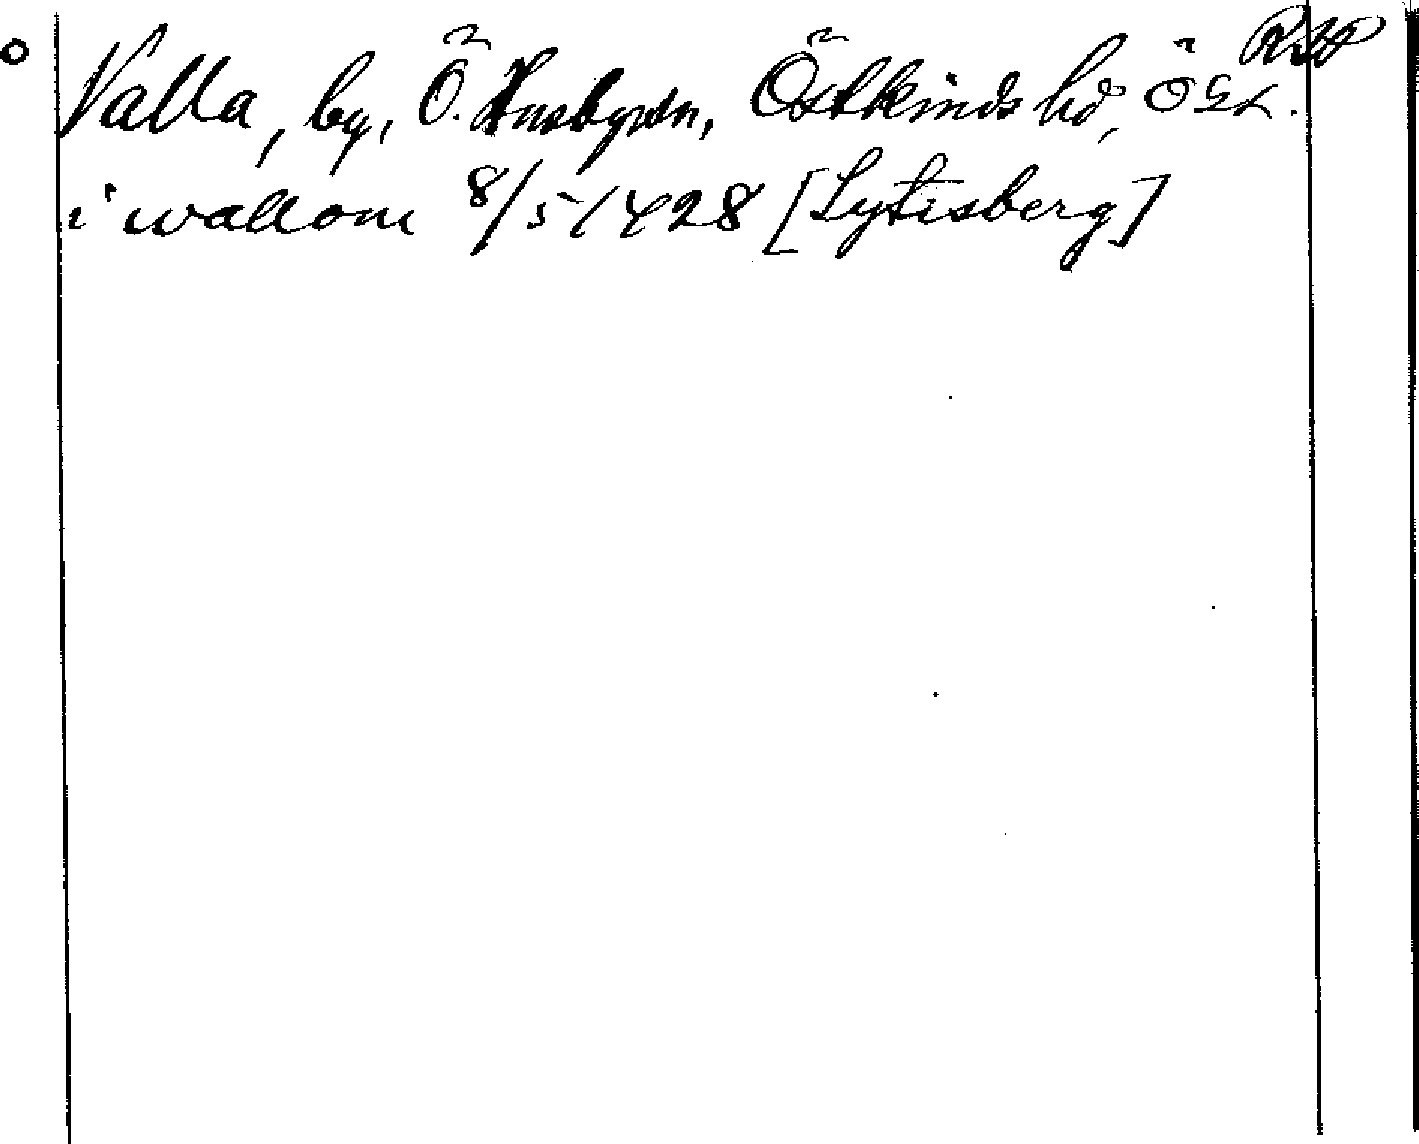 Valla, by, Ö. Husby sn, Östkinds hd, ÖGL.
i wallom 8/5 1428 [Lytisberg]